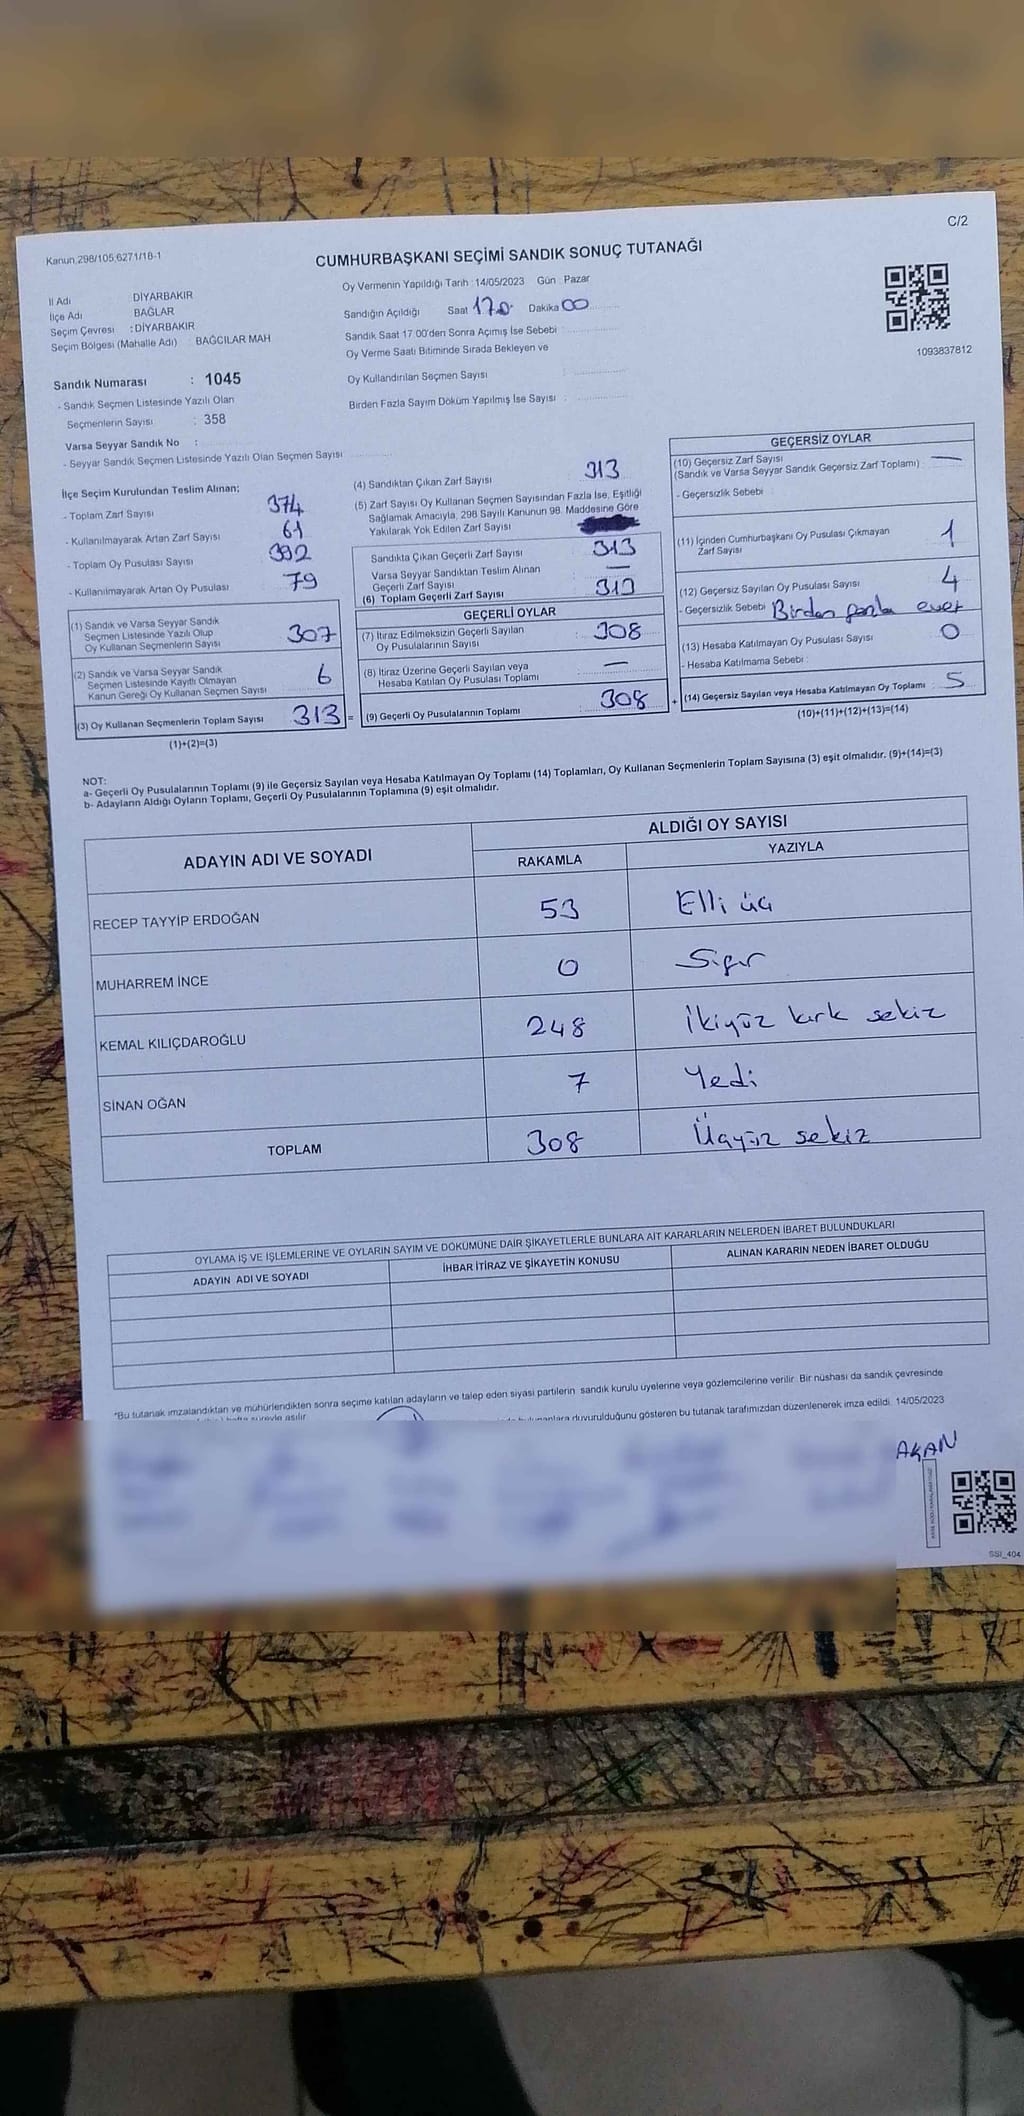 C/2
Kanun,298/105,6271/18-1
CUMHURBAŞKANI SEÇİMİ SANDIK SONUÇ TUTANAĞI
İl Adı : DİYARBAKIR
İlçe Adı : BAĞLAR
Seçim Çevresi : DİYARBAKIR
Seçim Bölgesi (Mahalle Adı) : BAĞCILAR MAH
Sandık Numarası : 1045
- Sandık Seçmen Listesinde Yazılı Olan
Seçmenlerin Sayısı : 358
Varsa Seyyar Sandık No :
- Seyyar Sandık Seçmen Listesinde Yazılı Olan Seçmen Sayısı
Oy Vermenin Yapıldığı Tarih : 14/05/2023 Gün : Pazar
Sandığın Açıldığı Saat Dakika 00
Sandık Saat 17:00'den Sonra Açımış İse Sebebi :
Oy Verme Saati Bitiminde Sırada Bekleyen ve
Oy Kullandırılan Seçmen Sayısı :
Birden Fazla Sayım Döküm Yapılmış İse Sayısı :
1093837812
İlçe Seçim Kurulundan Teslim Alınan;
- Toplam Zarf Sayısı 374
- Kullanılmayarak Artan Zarf Sayısı 61
- Toplam Oy Pusulası Sayısı 392
- Kullanılmayarak Artan Oy Pusulası 79
(1) Sandık ve Varsa Seyyar Sandık
Seçmen Listesinde Yazılı Olup
Oy Kullanan Seçmenlerin Sayısı 307
(2) Sandık ve Varsa Seyyar Sandık
Seçmen Listesinde Kayıtlı Olmayan
Kanun Gereği Oy Kullanan Seçmen Sayısı 6
(3) Oy Kullanan Seçmenlerin Toplam Sayısı 313 =
(1)+(2)=(3)
(4) Sandıktan Çıkan Zarf Sayısı 313
(5) Zarf Sayısı Oy Kullanan Seçmen Sayısından Fazla İse, Eşitliği
Sağlamak Amacıyla, 298 Sayılı Kanunun 98. Maddesine Göre
Yakılarak Yok Edilen Zarf Sayısı
Sandıkta Çıkan Geçerli Zarf Sayısı 313
Varsa Seyyar Sandıktan Teslim Alınan
Geçerli Zarf Sayısı —
(6) Toplam Geçerli Zarf Sayısı 313
GEÇERLİ OYLAR
(7) İtiraz Edilmeksizin Geçerli Sayılan
Oy Pusulalarının Sayısı 308
(8) İtiraz Üzerine Geçerli Sayılan veya
Hesaba Katılan Oy Pusulası Toplamı —
(9) Geçerli Oy Pusulalarının Toplamı : 308 +
GEÇERSİZ OYLAR
(10) Geçersiz Zarf Sayısı
(Sandık ve Varsa Seyyar Sandık Geçersiz Zarf Toplamı) : —
- Geçersizlik Sebebi :
(11) İçinden Cumhurbaşkanı Oy Pusulası Çıkmayan
Zarf Sayısı 1
(12) Geçersiz Sayılan Oy Pusulası Sayısı 4
- Geçersizlik Sebebi Birden fazla evet
(13) Hesaba Katılmayan Oy Pusulası Sayısı 0
- Hesaba Katılmama Sebebi :
(14) Geçersiz Sayılan veya Hesaba Katılmayan Oy Toplamı : 5
(10)+(11)+(12)+(13)=(14)
NOT:
a- Geçerli Oy Pusulalarının Toplamı (9) ile Geçersiz Sayılan veya Hesaba Katılmayan Oy Toplamı (14) Toplamları, Oy Kullanan Seçmenlerin Toplam Sayısına (3) eşit olmalıdır. (9)+(14)=(3)
b- Adayların Aldığı Oyların Toplamı, Geçerli Oy Pusulalarının Toplamına (9) eşit olmalıdır.
ADAYIN ADI VE SOYADI ALDIĞI OY SAYISI
RAKAMLA YAZIYLA
RECEP TAYYİP ERDOĞAN 53 Elli üç
MUHARREM İNCE 0 Sıfır
KEMAL KILIÇDAROĞLU 248 İkiyüz kırk sekiz
SİNAN OĞAN 7 Yedi
TOPLAM 308 Üçyüz sekiz
OYLAMA İŞ VE İŞLEMLERİNE VE OYLARIN SAYIM VE DÖKÜMÜNE DAİR ŞİKAYETLERLE BUNLARA AİT KARARLARIN NELERDEN İBARET BULUNDUKLARI
ADAYIN ADI VE SOYADI İHBAR İTİRAZ VE ŞİKAYETİN KONUSU ALINAN KARARIN NEDEN İBARET OLDUĞU
*Bu tutanak imzalandıktan ve mühürlendikten sonra seçime katılan adayların ve talep eden siyasi partilerin sandık kurulu üyelerine veya gözlemcilerine verilir. Bir nüshası da sandık çevresinde
duyurulduğunu gösteren bu tutanak tarafımızdan düzenlenerek imza edildi. 14/05/2023
AKAN
SSI_404